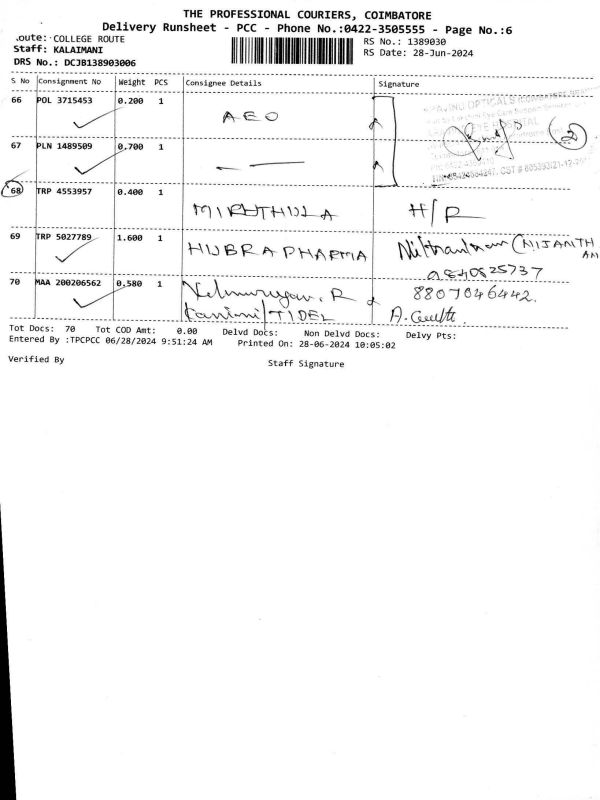 THE PROFESSIONAL COURIERS, COIMBATORE
Delivery Runsheet - PCC - Phone No.:0422-3505555 - Page No.:6
oute: COLLEGE ROUTE
RS No.: 1389030
Staff: KALAIMANI
RS Date: 28-Jun-2024
DRS No.: DCJB138903006
S No Consignment No Weight PCS Consignee Details Signature
66 POL 3715453 0.200 1 AEO
67 PLN 1489509 0.700 1 2
68 TRP 4553957 0.400 1
MIRUTHULA H/R
69 TRP 5027789 1.600 1 HUBRA PHARMA
70 MAA 200206562 0.580 1 R 8807046442.
TIDEL
Tot Docs: 70 Tot COD Amt: 0.00 Delvd Docs: Non Delvd Docs: Delvy Pts:
Entered By :TPCPCC 06/28/2024 9:51:24 AM Printed On: 28-06-2024 10:05:02
Verified By Staff Signature